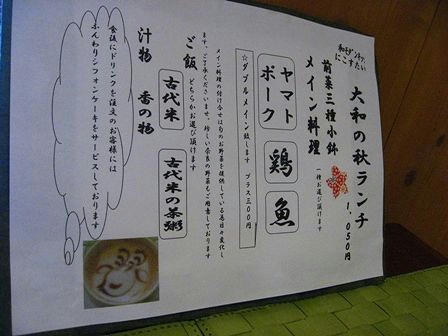 和モダンキッチン
にこすたいる
大和の秋ランチ
1,050円
前菜三種小鉢
メイン料理
一種お選び頂けます
ヤマト
ポーク
鶏
魚
☆ダブルメイン致します プラス300円
メイン料理の付け合せは旬のお野菜を提供している為日々変化し
ます。ご了承くださいませ。珍しい奈良の野菜もご用意しております
ご飯
どちらかお選び頂けます
古代米
古代米の茶粥
汁物 香の物
食後にドリンクを注文のお客様には
ふんわりシフォンケーキをサービスしております